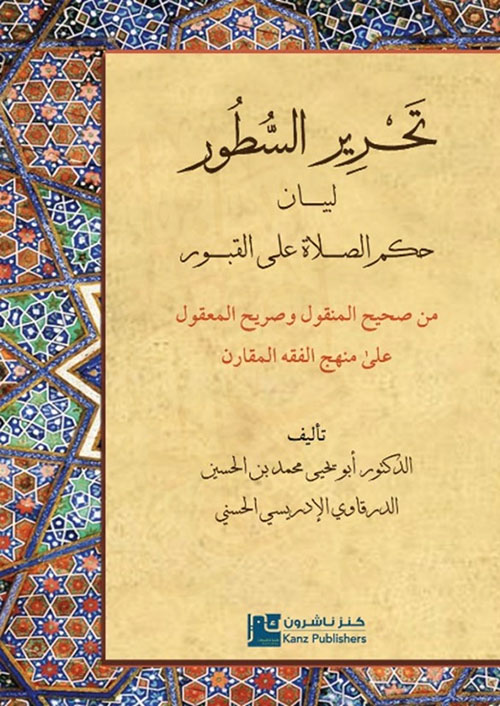 تَحْرِير السُّطُور
لبيان
حكم الصلاة على القبور
من صحيح المنقول وصريح المعقول
علىٰ منهج الفقه المقارن
تأليف
الدكتور أبو يحيى محمد بن الحسين
الدرقاوي الإدريسي الحسني
كنز ناشرون
Kanz Publishers